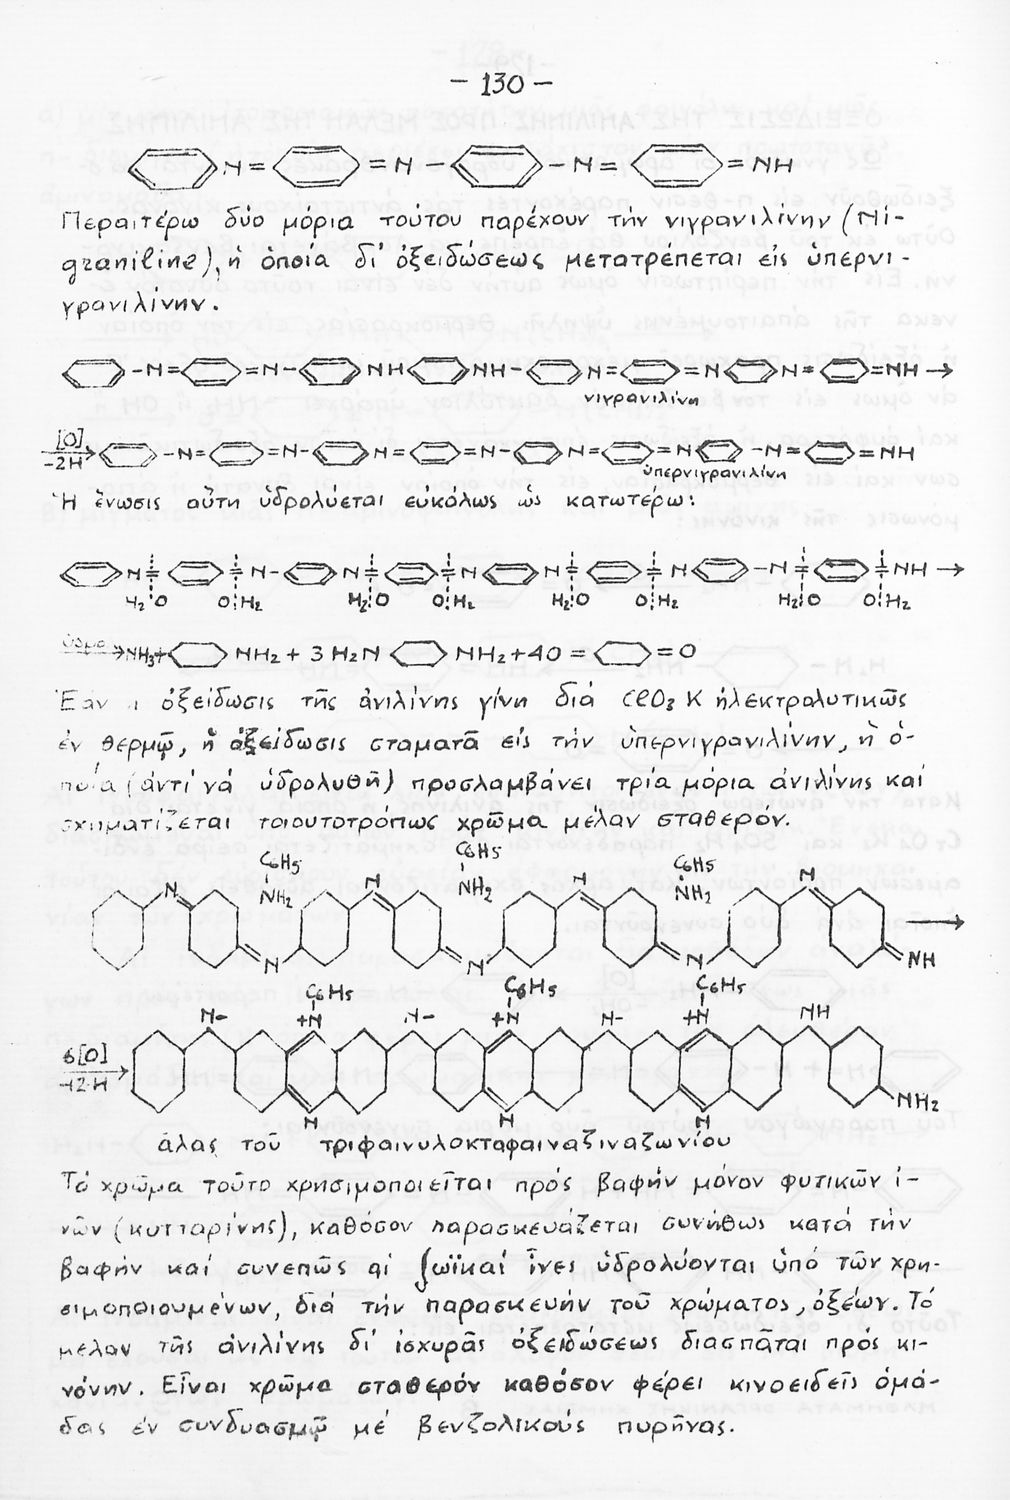 - 130 -
N = = N - - N = = NH
Περαιτέρω δύο μόρια τούτου παρέχουν τήν νιγρανιλίνην (Ni-
graniline), ἡ ὁποία δι' ὀξειδώσεως μετατρέπεται εἰς ὑπερνι-
γρανιλίνην.
-N= =N- NH NH- N= =N N= =NH →
νιγρανιλίνη
[O] -2H → -N= =N- N= =N- N= =N -N= =NH
ὑπερνιγρανιλίνη
Ἡ ἕνωσις αὕτη ὑδρολύεται εὐκόλως ὡς κατωτέρω:
N= = N- N= = N N= = N -N= = NH →
H₂ O O H₂ H₂ O O H₂ H₂ O O H₂ H₂ O O H₂
→ NH₃+ NH₂ + 3 H₂N NH₂ + 4O = = O
Ἐάν ὀξείδωσις τῆς ἀνιλίνης γίνη διά ClO₃K ἠλεκτρολυτικῶς
ἐν θερμῷ, ἡ ὀξείδωσις σταματᾶ εἰς τήν ὑπερνιγρανιλίνην, ἡ ὁ-
ποία (ἀντί νά ὑδρολυθῆ) προσλαμβάνει τρία μόρια ἀνιλίνης καί
σχηματίζεται τοιουτοτρόπως χρῶμα μέλαν σταθερόν.
C₆H₅ C₆H₅ C₆H₅
N NH₂ N NH₂ N NH₂ N
N N N NH →
C₆H₅ C₆H₅ C₆H₅
N- +N N- +N N- +N NH
6[O] -12H →
N N N NH₂
ἅλας τοῦ τριφαινυλοκταφαιναζιναζωνίου
Τό χρῶμα τοῦτο χρησιμοποιεῖται πρός βαφήν μόνον φυτικῶν ἰ-
νῶν (κυτταρίνης), καθόσον παρασκευάζεται συνήθως κατά τήν
βαφήν καί συνεπῶς αἱ ζωϊκαί ἶνες ὑδρολύονται ὑπό τῶν χρη-
σιμοποιουμένων, διά τήν παρασκευήν τοῦ χρώματος, ὀξέων. Τό
μέλαν τῆς ἀνιλίνης δι' ἰσχυρᾶς ὀξειδώσεως διασπᾶται πρός κι-
νόνην. Εἶναι χρῶμα σταθερόν καθόσον φέρει κινοειδεῖς ὁμά-
δας ἐν συνδυασμῷ μέ βενζολικούς πυρῆνας.